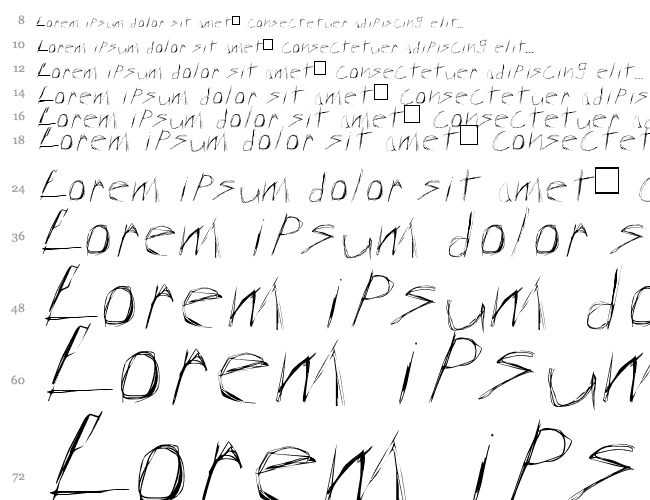 8 Lorem iPsum dolor sit amet□ ConseCtetuer adiPisCing elit...
10 Lorem iPsum dolor sit amet□ ConseCtetuer adiPisCing elit...
12 Lorem iPsum dolor sit amet□ ConseCtetuer adiPisCing elit...
14 Lorem iPsum dolor sit amet□ ConseCtetuer adiPis
16 Lorem iPsum dolor sit amet□ ConseCtetuer ad
18 Lorem iPsum dolor sit amet□ ConseCtet
24 Lorem iPsum dolor sit amet□ C
36 Lorem iPsum dolor s
48 Lorem iPsum do
60 Lorem iPsum
72 Lorem iPs